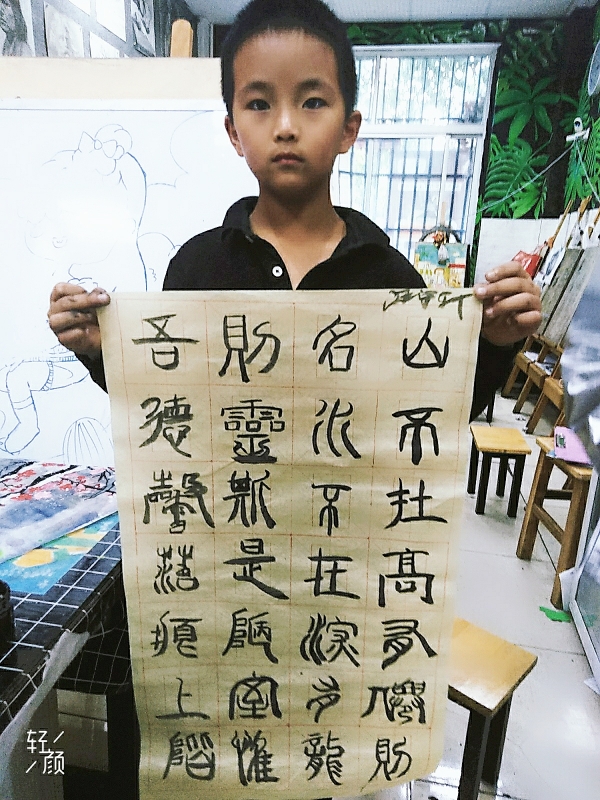 山不在高有僊則
名水不在深有龍
則靈斯是陋室惟
吾德馨菭痕上階
轻颜